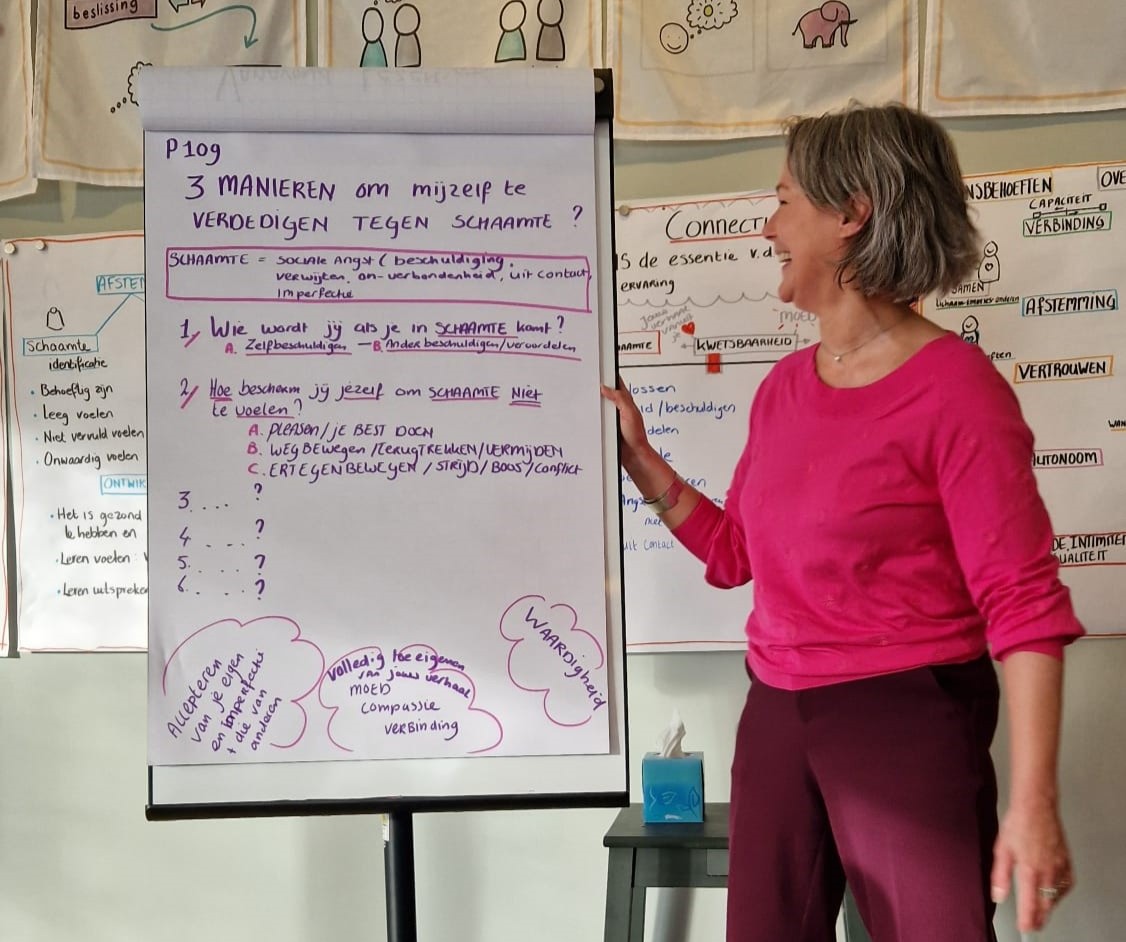 beslissing
P109
3 MANIEREN om mijzelf te
VERDEDIGEN TEGEN SCHAAMTE ?
SCHAAMTE = sociale angst ( beschuldiging,
verwijten, on-verbondenheid, uit contact,
imperfectie
1, Wie wordt jij als je in SCHAAMTE komt?
A. Zelfbeschuldigen - B. Ander beschuldigen/veroordelen
2, Hoe bescherm jij jezelf om SCHAAMTE Niet
te voelen?
A. pleasen/je BEST DOEN
B. WEG BEWEGEN /TERUGTREKKEN/VERMIJDEN
C. ERTEGEN BEWEGEN / STRIJD/ BOOS/Conflict
3.... ?
4 ... ?
5..... ?
6..... ?
Accepteren
van je eigen
en imperfectie
+ die van
anderen
volledig toe eigenen
van jouw verhaal
MOED
compassie
verbinding
WAARDIGHEID
AFSTE
Schaamte
identificatie
• Behoeftig zijn
• Leeg voelen
• Niet vervuld voelen
• Onwaardig voelen
ONTWIK
• Het is gezond
te hebben en
• Leren voelen
• Leren uitspreke
Connect
S de essentie v.d
ERVARING
AAMTE
KWETSBAARHEID
MOED
lossen
ld/beschuldigen
delen
uit contact
NSBEHOEFTEN
OVE
CAPACITEIT
VERBINDING
SAMEN
AFSTEMMING
VERTROUWEN
AUTONOOM
DE, INTIMITEI
UALITEIT